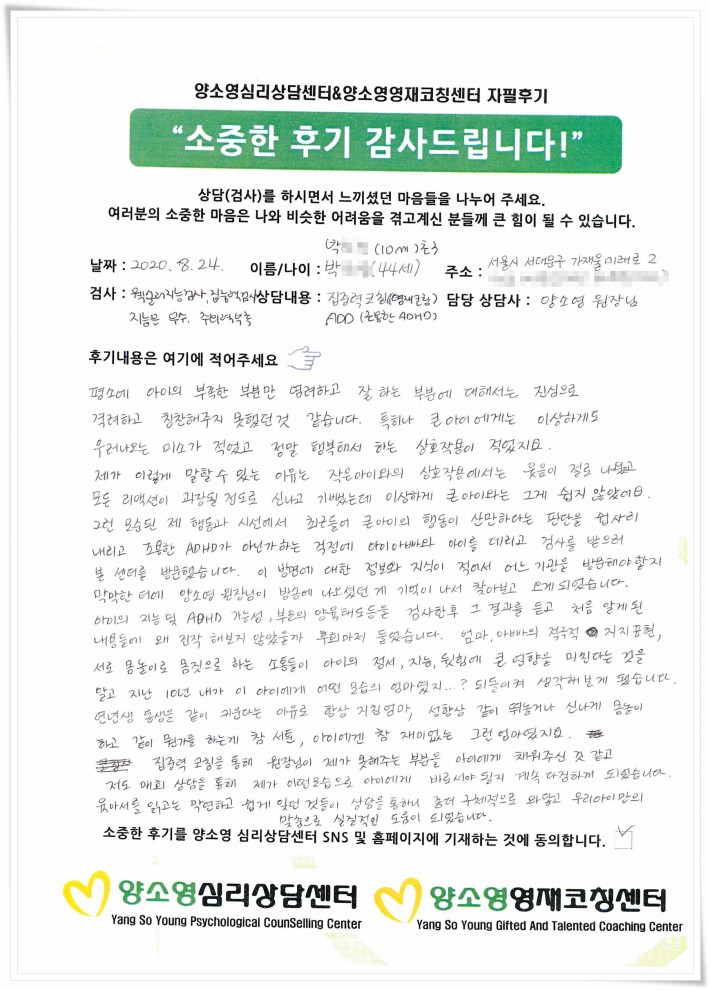 양소영심리상담센터&양소영영재코칭센터 자필후기
“소중한 후기 감사드립니다!”
상담(검사)를 하시면서 느끼셨던 마음들을 나누어 주세요.
여러분의 소중한 마음은 나와 비슷한 어려움을 겪고계신 분들께 큰 힘이 될 수 있습니다.
(박 (10세) 초3
날짜 : 2020. 8. 24. 이름/나이 : 박 (44세) 주소 : 서울시 서대문구 가재울미래로 2
검사 : 웩슬러지능검사, 집중력검사 상담내용 : 집중력 코칭(영재코칭) 담당 상담사 : 양소영 원장님
지능은 우수. 주의력부족 ADD (조용한 ADHD)
후기내용은 여기에 적어주세요
평소에 아이의 부족한 부분만 염려하고 잘 하는 부분에 대해서는 진심으로
격려하고 칭찬해주지 못했던것 같습니다. 특히나 큰아이에게는 이상하게도
우러나오는 미소가 적었고 정말 행복해서 하는 상호작용이 적었지요.
제가 이렇게 말할 수 있는 이유는 작은아이와의 상호작용에서는 웃음이 절로 나왔고
모든 리액션이 과장될 정도로 신나고 기뻤는데 이상하게 큰아이와는 그게 쉽지 않았어요.
그런 모습된 제 행동과 시선에서 최근들어 큰아이의 행동이 산만하다는 판단을 섣사리
내리고 조용한 ADHD가 아닌가하는 걱정에 아이아빠와 아이를 데리고 검사를 받으러
본 센터를 방문했습니다. 이 방면에 대한 정보와 지식이 적어서 어느 기관을 방문해야할지
막막한 터에 양소영 원장님이 방송에 나오셨던 게 기억이 나서 찾아보고 오게되었습니다.
아이의 지능 및 ADHD 가능성, 부모의 양육태도등을 검사한후 그 결과를 듣고 처음 알게된
내용들에 왜 진작 해보지 않았을까 후회마저 들었습니다. 엄마, 아빠의 적극적 지지표현,
서로 몸놀이로 몸짓으로 하는 소통들이 아이의 정서, 지능, 뇌힘에 큰 영향을 미친다는 것을
알고 지난 10년 내가 이 아이에게 어떤 모습의 엄마였지...? 되돌이켜 생각해보게 됐습니다.
연년생 동생을 같이 키운다는 이유로 항상 지친엄마, 성향상 같이 뛰놀거나 신나게 몸놀이
하고 같이 뭔가를 하는게 참 서툰, 아이에겐 참 재미없는 그런 엄마였지요.
집중력 코칭을 통해 원장님이 제가 못해주는 부분을 아이에게 채워주신 것 같고
저도 매회 상담을 통해 제가 어떤모습으로 아이에게 바로서야 될지 계속 다짐하게 되었습니다.
육아서를 읽고는 막연하고 쉽게 잊던 것들이 상담을 통하니 좀더 구체적으로 와닿고 우리아이만의
맞춤으로 실질적인 도움이 되었습니다.
소중한 후기를 양소영 심리상담센터 SNS 및 홈페이지에 기재하는 것에 동의합니다.
양소영심리상담센터 양소영영재코칭센터
Yang So Young Psychological CounSelling Center Yang So Young Gifted And Talented Coaching Center